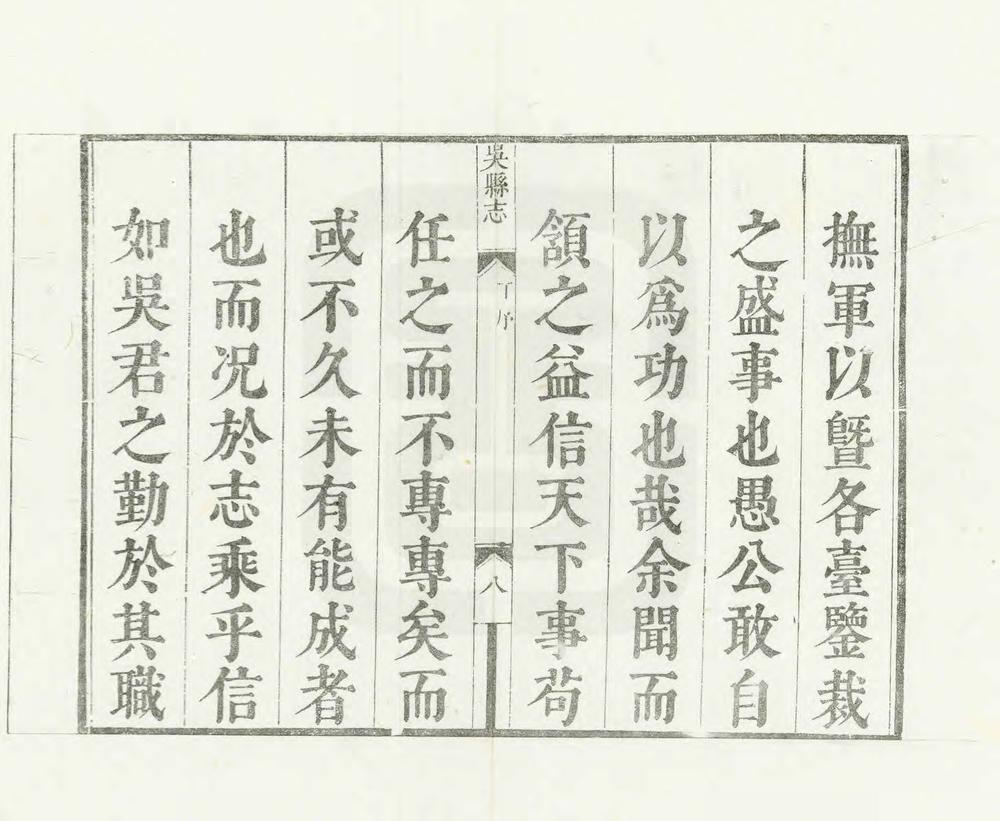 撫軍以暨各臺鑒裁
之盛事也愚公敢自
以爲功也哉余聞而
頷之益信天下事苟
吳縣志
丁序
八
任之而不專專矣而
或不久未有能成者
也而況於志乘乎信
如吳君之勤於其職